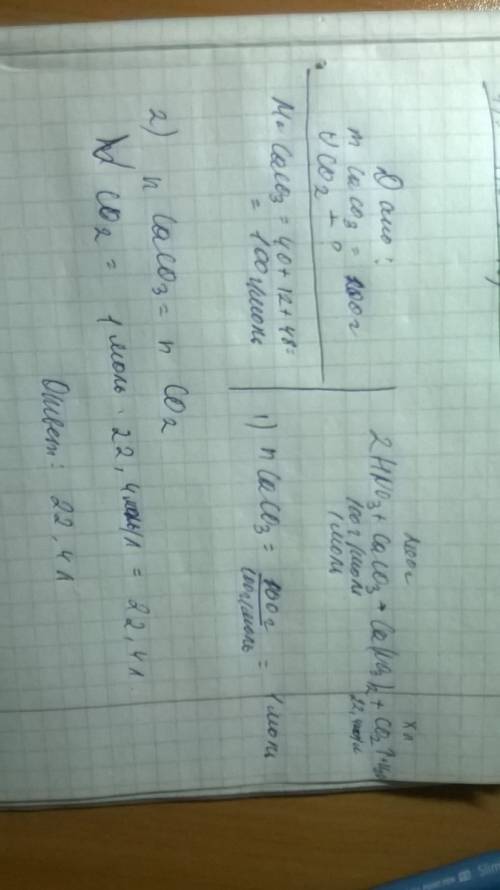 Дано:
m CaCO3 = 100г
V CO2 - ?
M CaCO3 = 40+12+48=
= 100г/моль
100г xл
2HNO3 + CaCO3 → Ca(NO3)2 + CO2↑ + H2O
100г/моль
1моль
1) n CaCO3 = 100г / 100г/моль = 1моль
2) n CaCO3 = n CO2
V CO2 = 1моль · 22,4моль/л = 22,4л.
Ответ: 22,4л
Slim